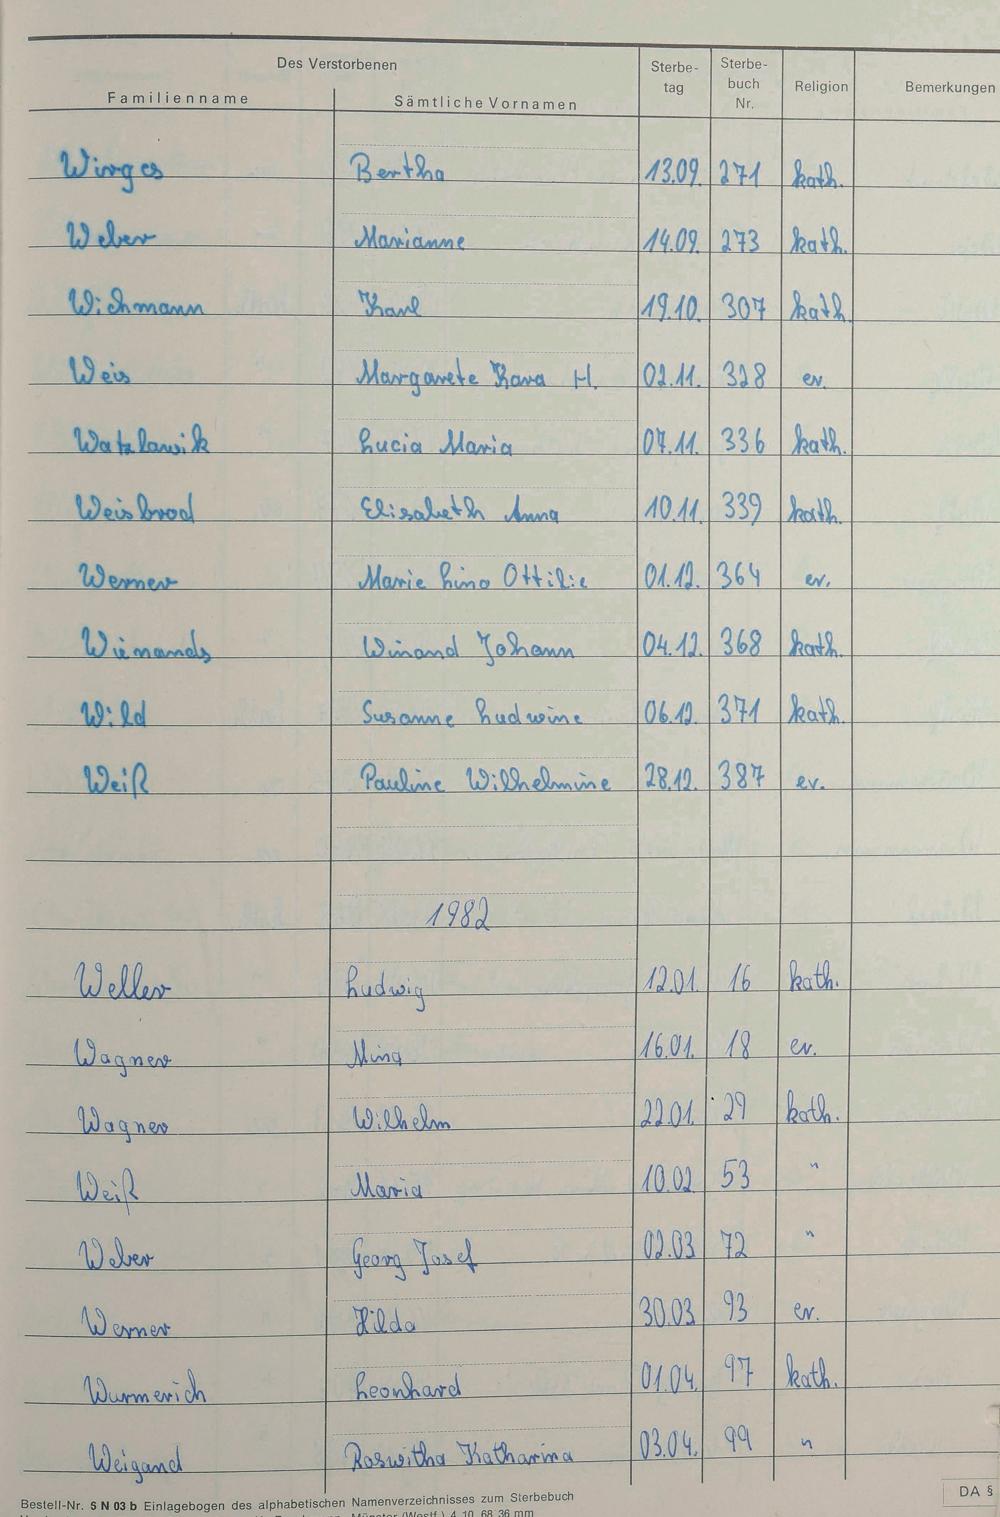 Des Verstorbenen
Familienname Sämtliche Vornamen Sterbe-tag Sterbe-buch Nr. Religion Bemerkungen
Wirges Bertha 13.09. 271 kath.
Weber Marianne 14.09. 273 kath.
Wichmann Karl 19.10. 307 kath.
Weis Margarete Klara H. 02.11. 328 ev.
Watzlawik Lucia Maria 07.11. 336 kath.
Weisbrod Elisabeth Anna 10.11. 339 kath.
Werner Marie Lina Ottilie 01.12. 364 ev.
Wienands Winand Johann 04.12. 368 kath.
Wild Susanne Ludwine 06.12. 371 kath.
Weiß Pauline Wilhelmine 28.12. 387 ev.
1982
Weller Ludwig 12.01. 16 kath.
Wagner Mina 16.01. 18 ev.
Wagner Wilhelm 22.01. 29 kath.
Weiß Maria 10.02 53 "
Weber Georg Josef 02.03 72 "
Werner Hilda 30.03 93 ev.
Wurmerich Leonhard 01.04. 97 kath.
Weigand Roswitha Katharina 03.04. 99 "
Bestell-Nr. 5 N 03 b Einlagebogen des alphabetischen Namenverzeichnisses zum Sterbebuch DA §
Münster (Westf.) 4. 10. 68 36 mm